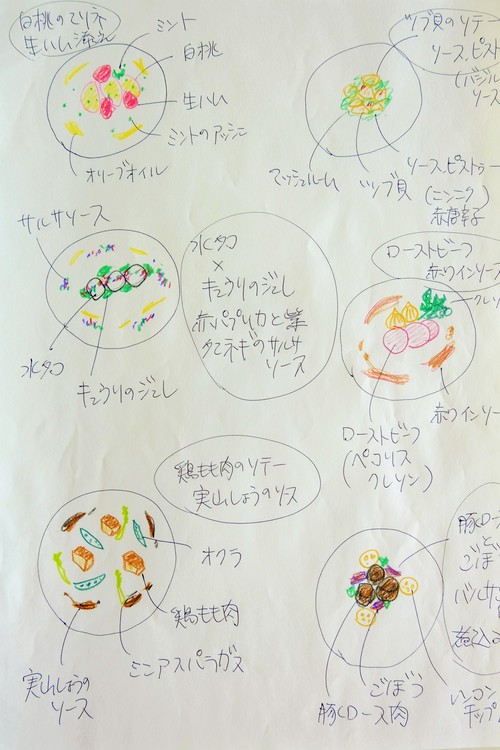 白桃のマリネ
生ハム添え
ミント
白桃
生ハム
ミントのアッシェ
オリーブオイル
ツブ貝のソテー
ソース.ピスト
(バジル
ソース
マッシュルーム
ツブ貝
ソース.ピストゥー
(ニンニク
赤唐辛子
サルサソース
水タコ
キュウリのジュレ
水タコ
×
キュウリのジュレ
赤パプリカと紫
タマネギのサルサ
ソース
ローストビーフ
赤ワインソース
クレソ
赤ワインソー
ローストビーフ
(ペコリス
クレソン)
鶏もも肉のソテー
実山しょうのソース
オクラ
鶏もも肉
ミニアスパラガス
実山しょうの
ソース
豚ロース
と
ごぼう
バルサ
煮込
ごぼう
豚ロース肉
レンコン
チップ